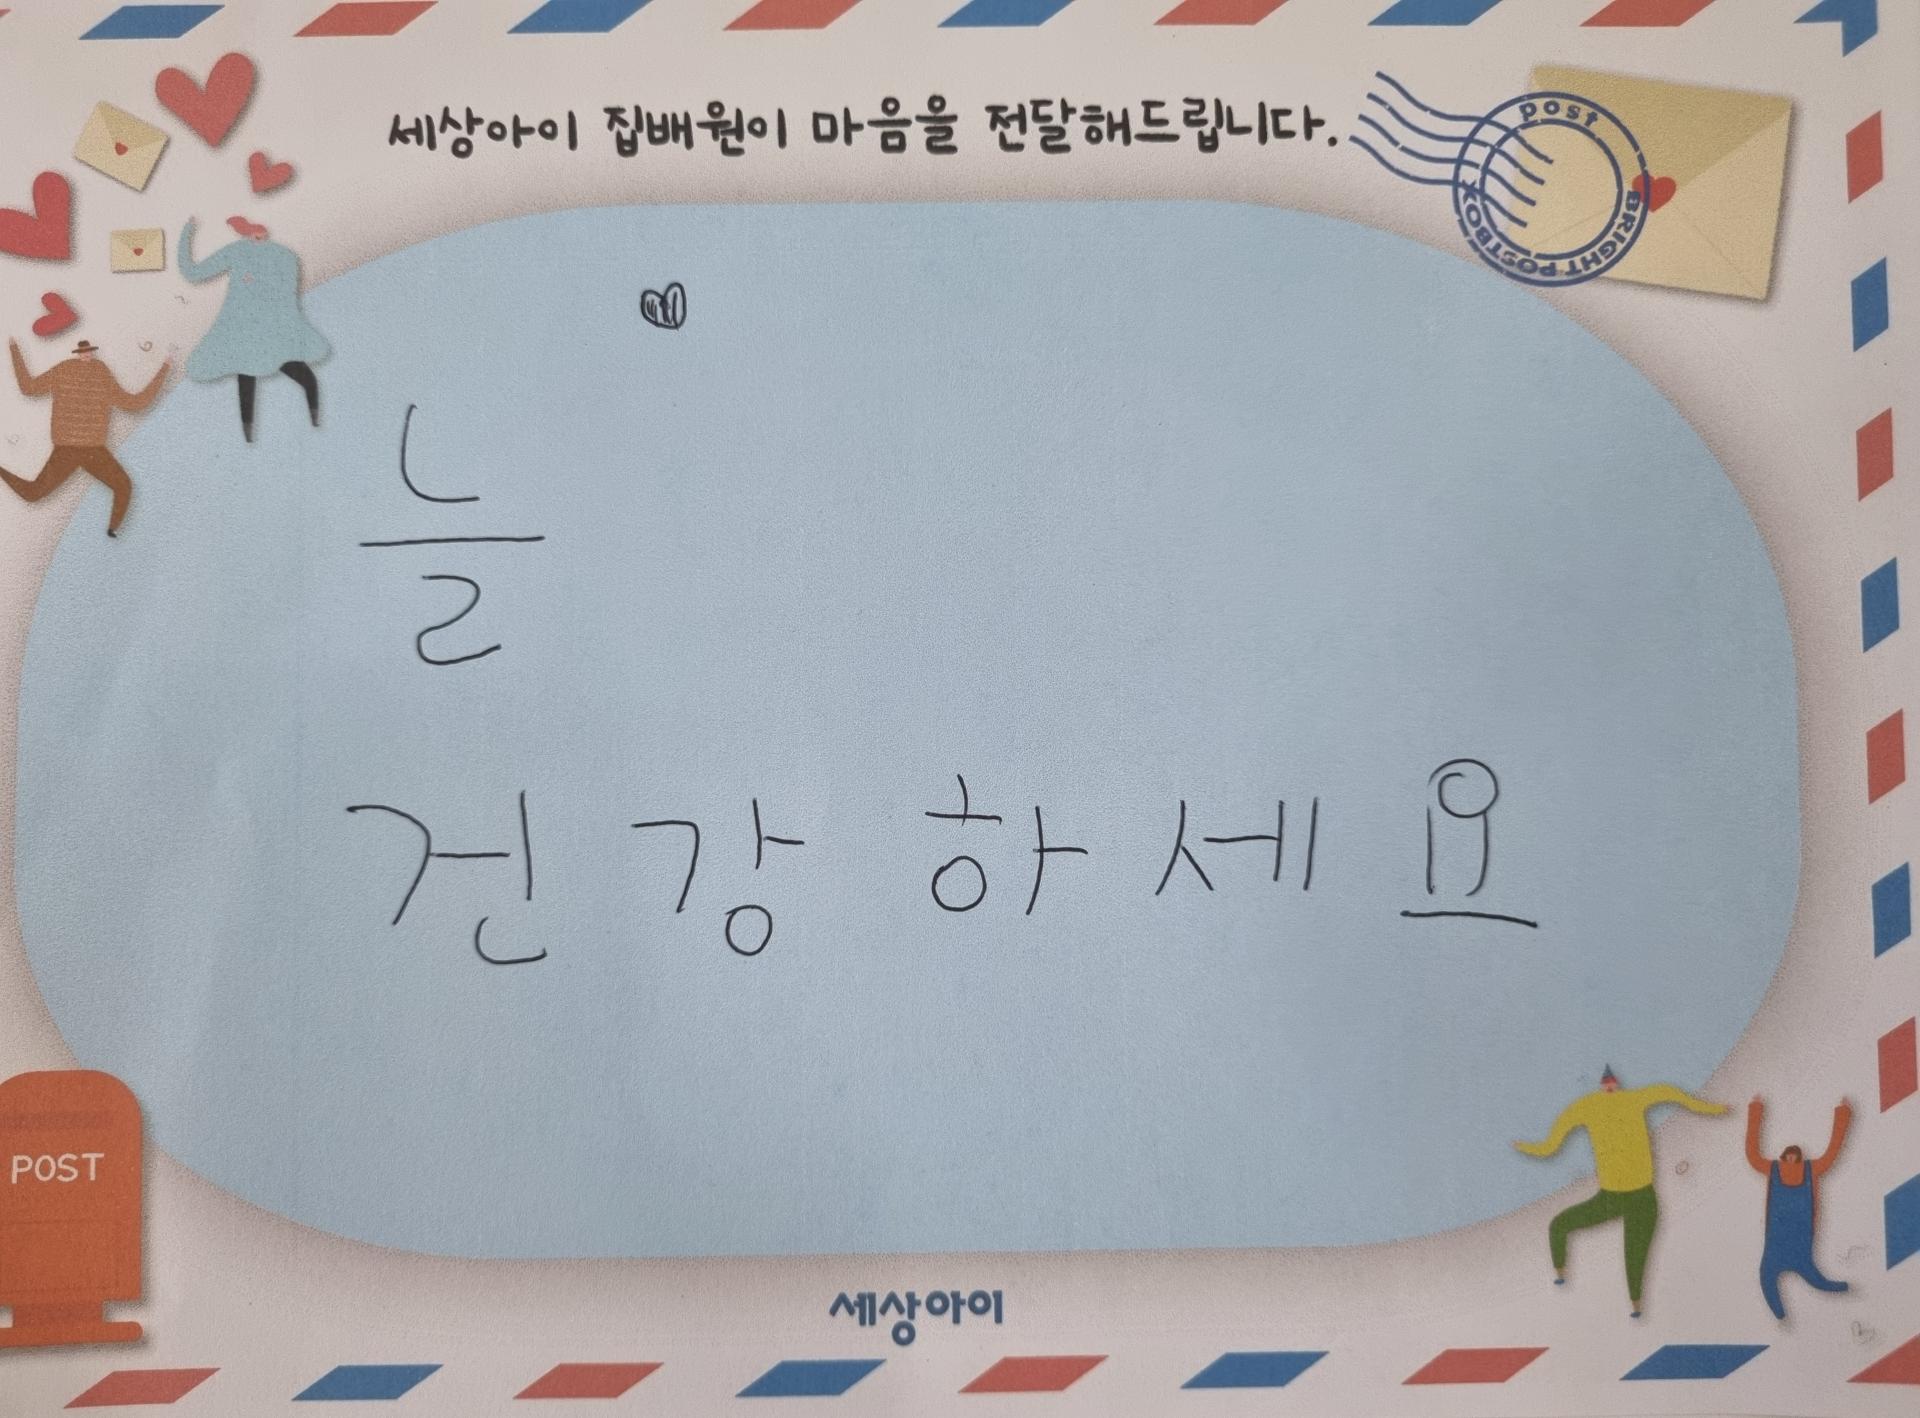 세상아이 집배원이 마음을 전달해드립니다.
post
BRIGHT POSTBOX
늘
건강하세요
POST
세상아이